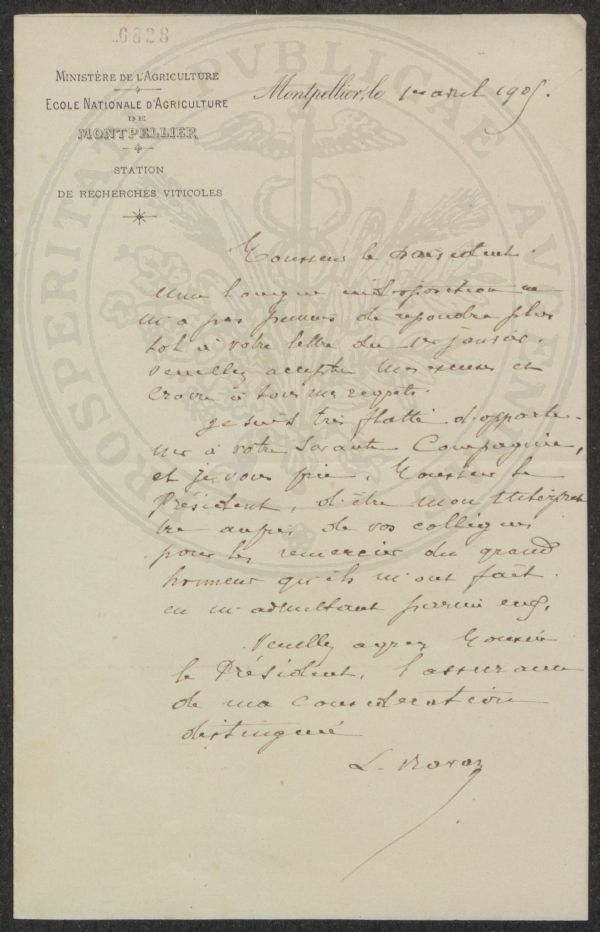 6828
MINISTÈRE DE L'AGRICULTURE
ECOLE NATIONALE D'AGRICULTURE
DE
MONTPELLIER
STATION
DE RECHERCHES VITICOLES
Montpellier, le 1er avril 1905.
PROSPERITATI PVBLICAE AVGENDAE
Monsieur le Président.
Une longue indisposition ne
m'a pas permis de répondre plus
tot à votre lettre du 1er janvier.
Veuillez accepter mes excuses et
croire à tous mes regrets.
Je suis très flatté d'apparte-
nir à votre Savante Compagnie,
et je vous prie, Monsieur le
Président, d'être mon interprè
tre auprès de vos collègues
pour les remercier du grand
honneur qu'ils m'ont fait
en m'admettant parmi eux.
Veuillez agréer Monsieur
le Président, l'assurance
de ma considération
distinguée
L. Ravaz